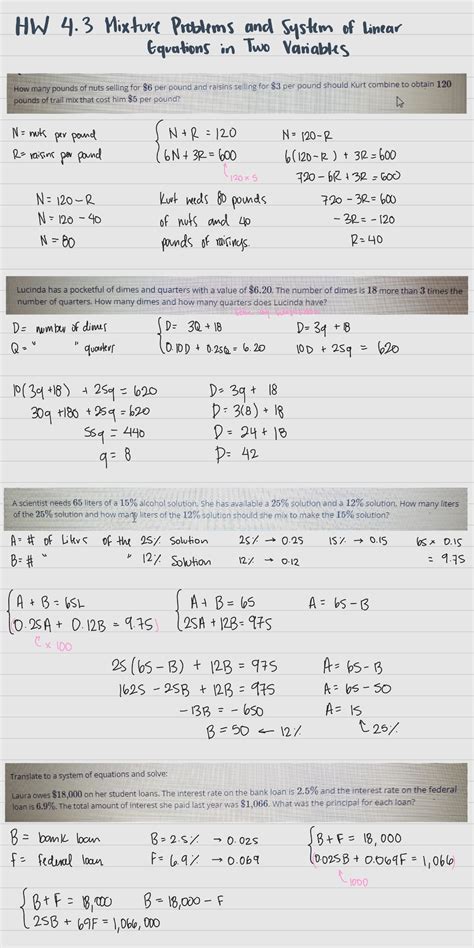 HW 4.3 Mixture Problems and System of Linear
Equations in Two Variables
How many pounds of nuts selling for $6 per pound and raisins selling for $3 per pound should Kurt combine to obtain 120
pounds of trail mix that cost him $5 per pound?
N = nuts per pound
R = raisins per pound
N + R = 120
6N + 3R = 600
120 × 5
N = 120 - R
6(120 - R) + 3R = 600
720 - 6R + 3R = 600
720 - 3R = 600
- 3R = - 120
R = 40
N = 120 - R
N = 120 - 40
N = 80
Kurt needs 80 pounds
of nuts and 40
pounds of raisings.
Lucinda has a pocketful of dimes and quarters with a value of $6.20. The number of dimes is 18 more than 3 times the
number of quarters. How many dimes and how many quarters does Lucinda have?
D = number of dimes
Q = " " quarters
D = 3Q + 18
0.10D + 0.25Q = 6.20
D = 3q + 18
10D + 25q = 620
10(3q + 18) + 25q = 620
30q + 180 + 25q = 620
55q = 440
q = 8
D = 3q + 18
D = 3(8) + 18
D = 24 + 18
D = 42
A scientist needs 65 liters of a 15% alcohol solution. She has available a 25% solution and a 12% solution. How many liters
of the 25% solution and how many liters of the 12% solution should she mix to make the 15% solution?
A = # of liters of the 25% solution 25% → 0.25 15% → 0.15 65 × 0.15
B = # " " 12% solution 12% → 0.12 = 9.75
A + B = 65L
0.25A + 0.12B = 9.75
× 100
A + B = 65
25A + 12B = 975
A = 65 - B
25(65 - B) + 12B = 975
1625 - 25B + 12B = 975
- 13B = - 650
B = 50 ← 12%
A = 65 - B
A = 65 - 50
A = 15
25%
Translate to a system of equations and solve:
Laura owes $18,000 on her student loans. The interest rate on the bank loan is 2.5% and the interest rate on the federal
loan is 6.9%. The total amount of interest she paid last year was $1,066. What was the principal for each loan?
B = bank loan
f = federal loan
B = 2.5% → 0.025
F = 6.9% → 0.069
B + F = 18,000
0.025B + 0.069F = 1,066
1000
B + F = 18,000
25B + 69F = 1,066,000
B = 18,000 - F